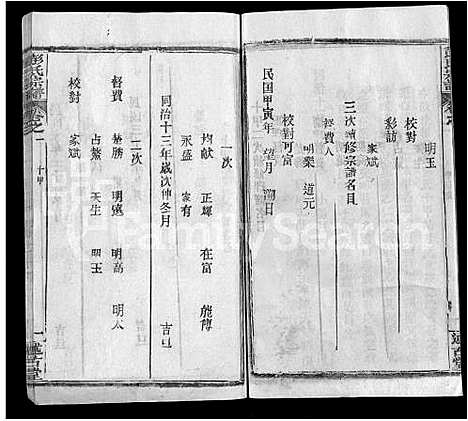 明玉
校對
家斌
彭訪
三次續修宗譜名目
明樂 道元
校對可富
民国甲寅年 望月 潤日
一次
均献 正輝 在富 能傳
永盛 家有
同治十三年歲次仲冬月 吉旦
二次
督費 楚勝 明遠 明高 明太
占鰲 天生 明玉
校對 家斌
吉旦
彭氏宗譜
卷之一
FamilySearch